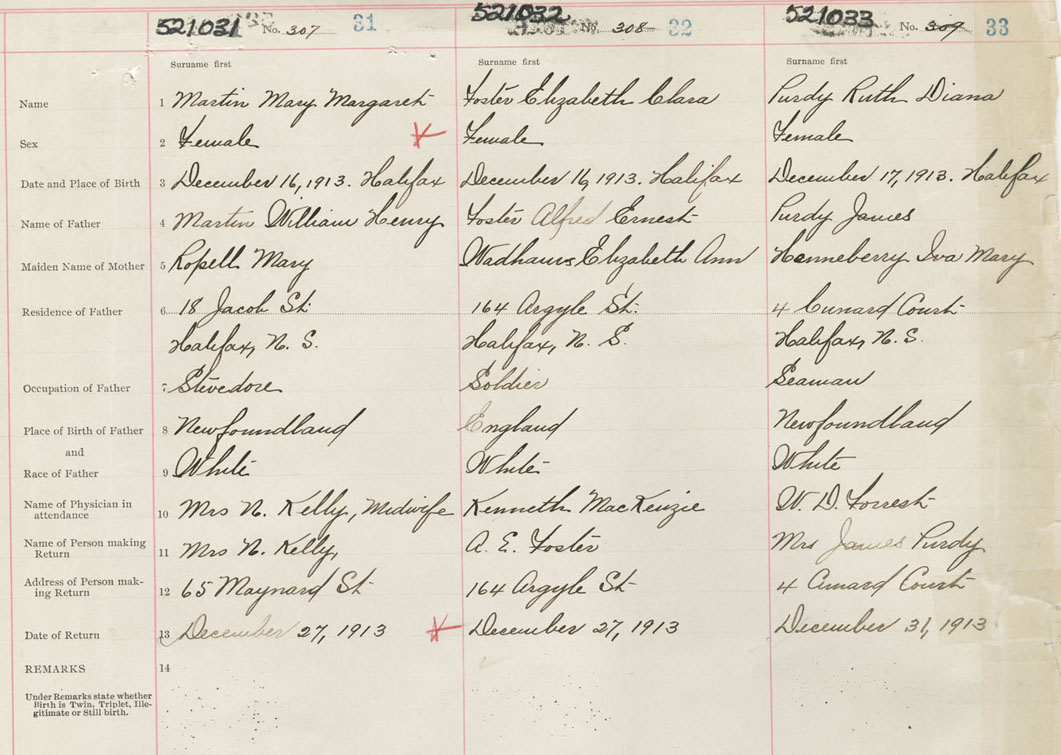 521031 No. 307 31 521032 No. 308 32 521033 No. 309 33
Surname first Surname first Surname first
Name 1 Martin Mary Margaret Foster Elizabeth Clara Purdy Ruth Diana
Sex 2 Female Female Female
Date and Place of Birth 3 December 16, 1913. Halifax December 16, 1913. Halifax December 17, 1913. Halifax
Name of Father 4 Martin William Henry Foster Alfred Ernest Purdy James
Maiden Name of Mother 5 Mary Elizabeth Ann Henneberry Iva Mary
Residence of Father 6 18 Jacob St. 164 Argyle St. 4 Cunard Court
Halifax, N. S. Halifax, N. S. Halifax, N. S.
Occupation of Father 7 Stevedore Soldier Seaman
Place of Birth of Father 8 Newfoundland England Newfoundland
and
Race of Father 9 White White White
Name of Physician in
attendance 10 Mrs N. Kelly, Midwife Kenneth MacKenzie W. D. Forrest
Name of Person making
Return 11 Mrs N. Kelly, A. E. Foster Mrs James Purdy
Address of Person mak-
ing Return 12 65 Maynard St 164 Argyle St 4 Court
Date of Return 13 December 27, 1913 December 27, 1913 December 31, 1913
REMARKS 14
Under Remarks state whether
Birth is Twin, Triplet, Ille-
gitimate or Still-birth.